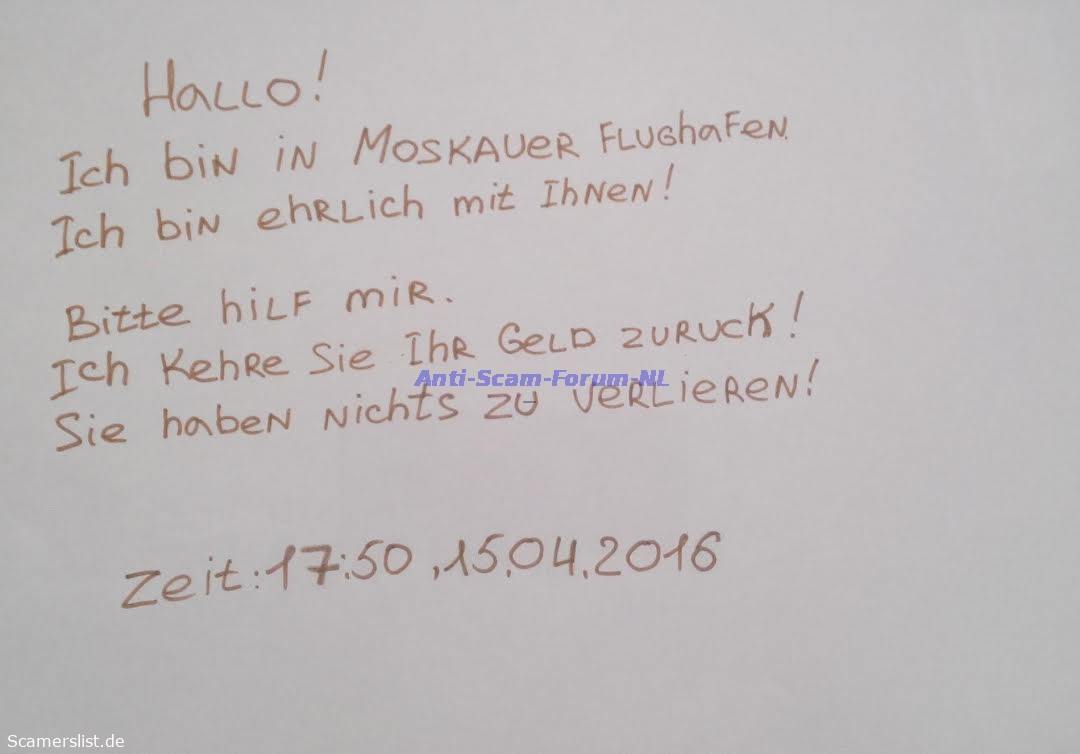 Hallo!
Ich bin in Moskauer Flughafen.
Ich bin ehrlich mit Ihnen!
Bitte hilf mir.
Ich kehre Sie Ihr Geld zuruck!
Anti-Scam-Forum-NL
Sie haben nichts zu verlieren!
Zeit: 17:50, 15.04.2016
Scamerslist.de